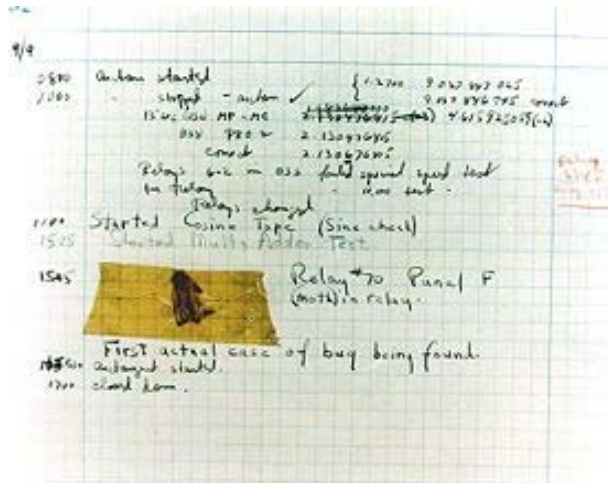 9/9
0800 Antan started
1000 " stopped - antan ✓ { 1.2700 9.037 847 025
9.037 846 795 correct
13"uc (032) MP - MC 2.130476415 4.615925059(-2)
033 PRO 2 2.130476415
correct 2.130676415
Relays 6-2 in 033 failed special speed test
in relay " test .
Relays changed
1100 Started Cosine Tape (Sine check)
1525 Started Mult+ Adder Test
1545 Relay #70 Panel F
(moth) in relay.
First actual case of bug being found.
antangent started.
1700 closed down.